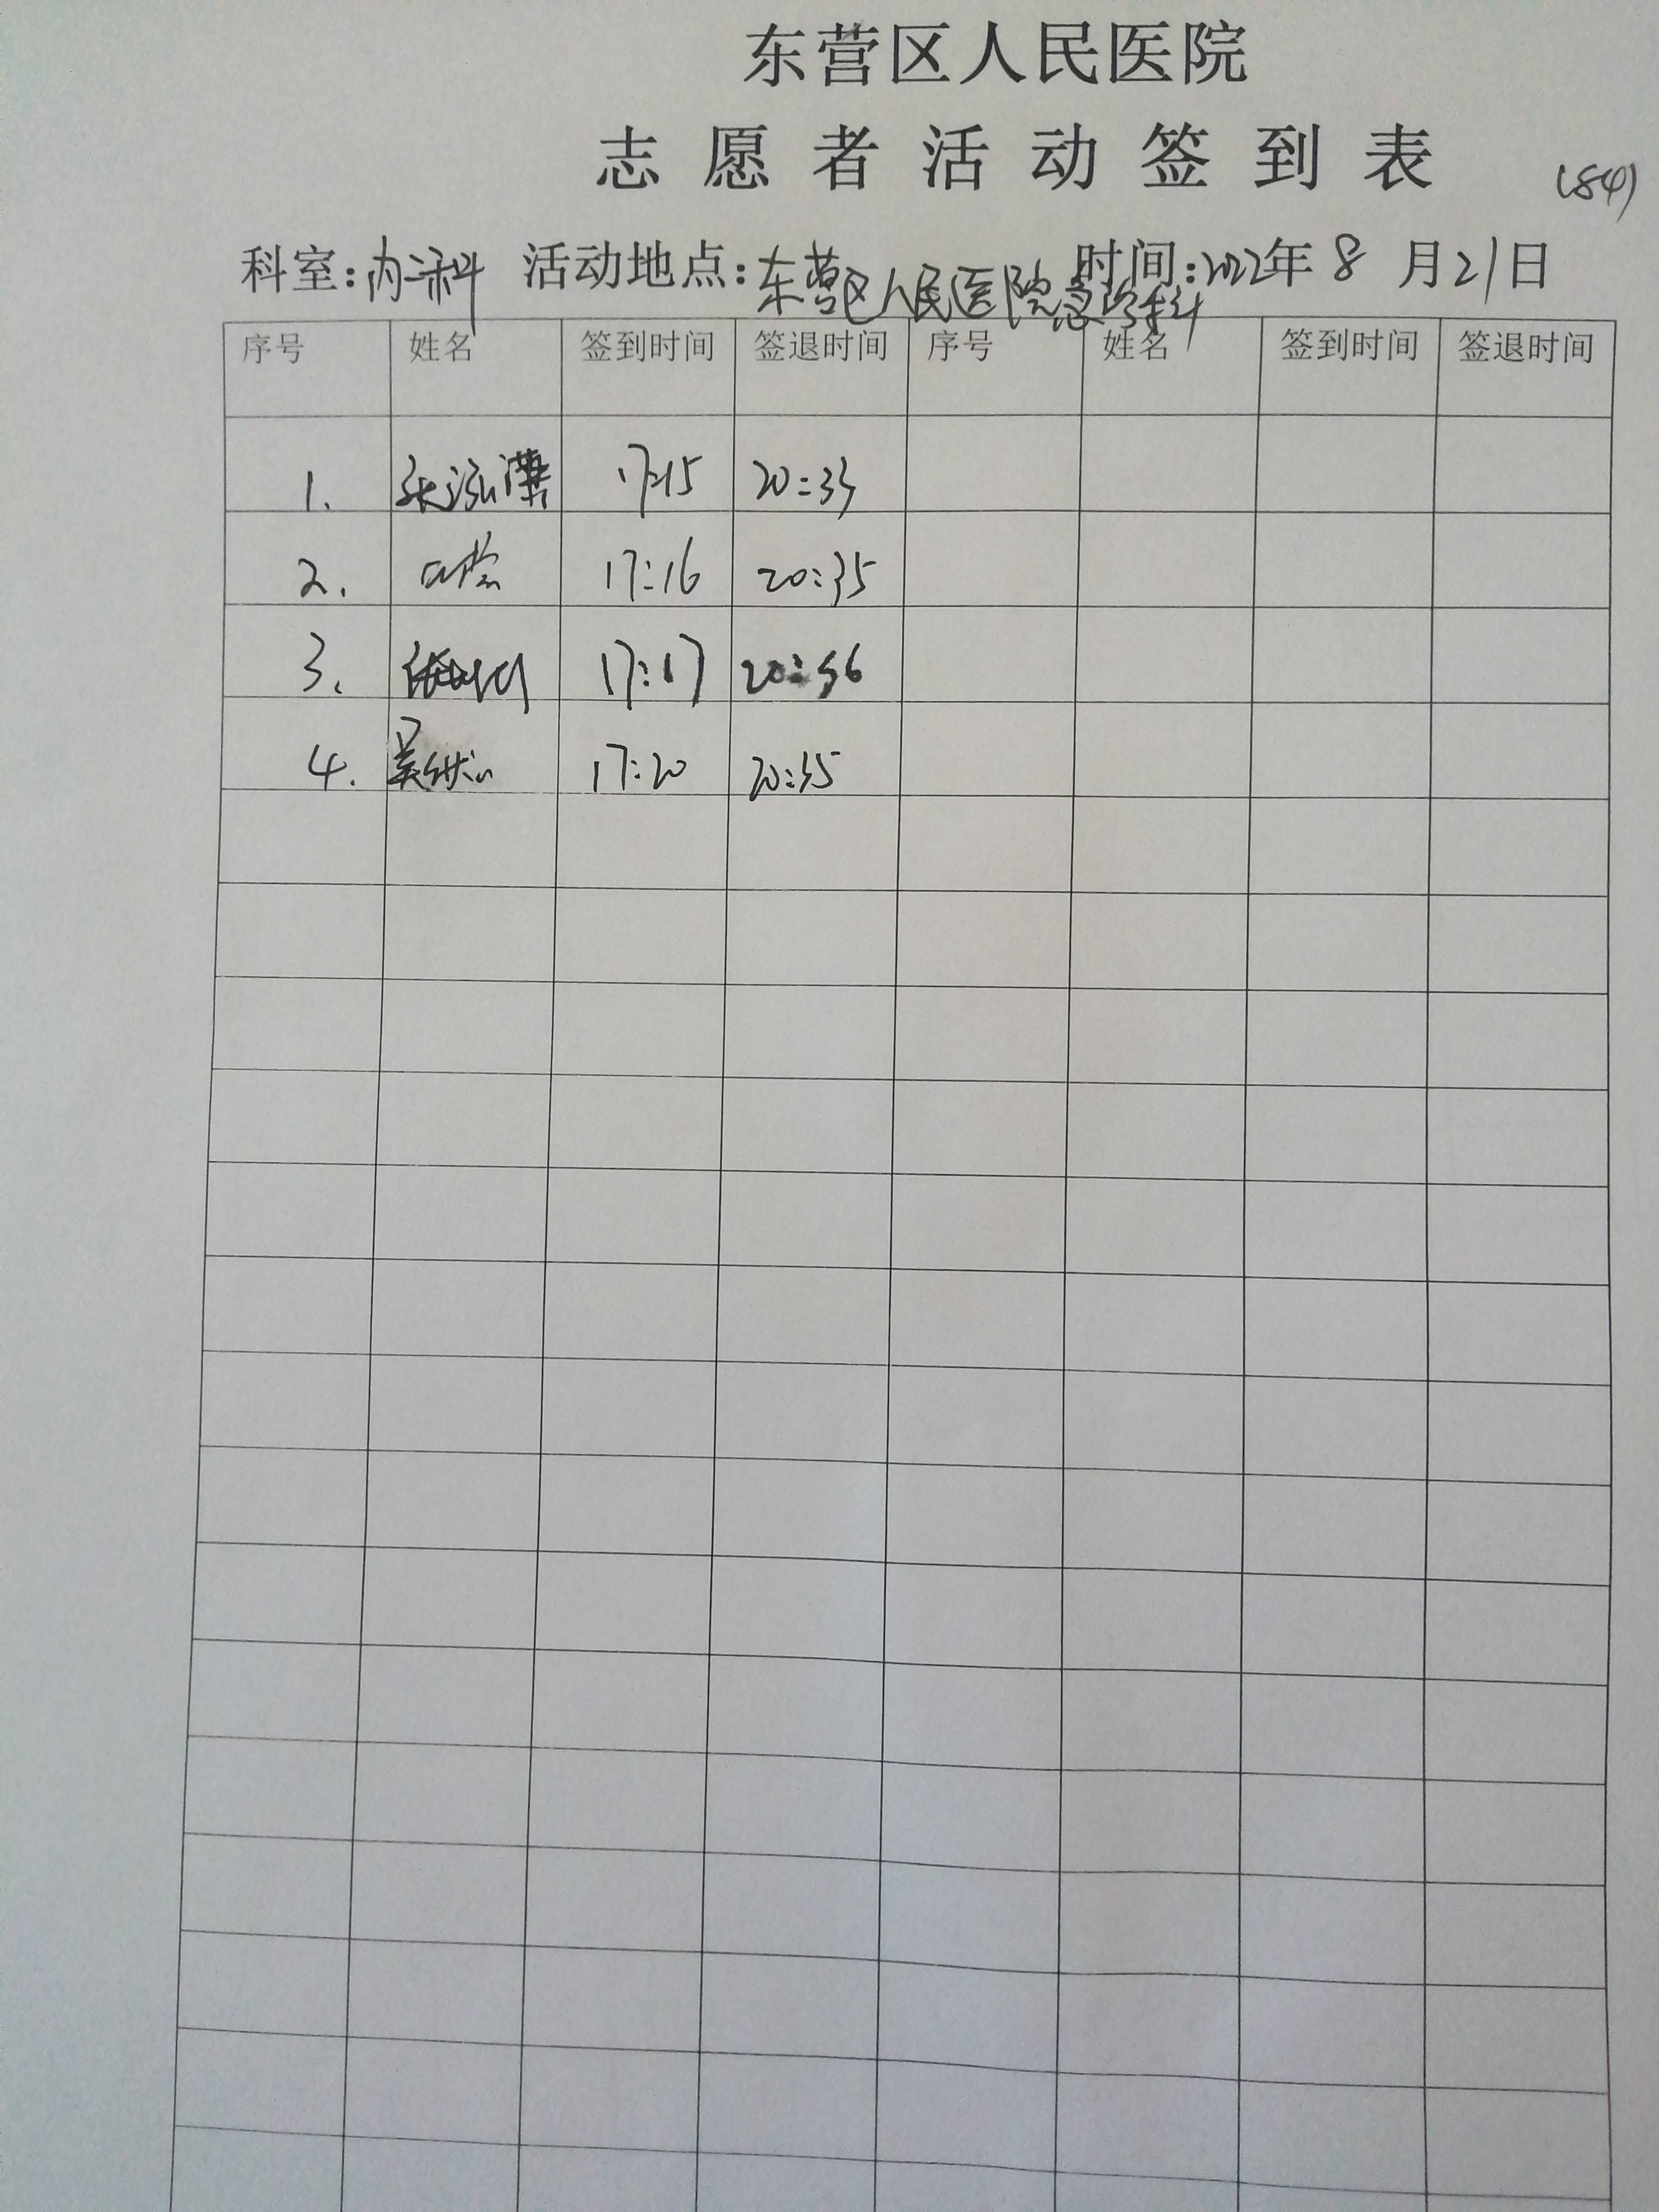 东营区人民医院
志愿者活动签到表
(84)
科室:内科 活动地点:东营区人民医院急诊科 时间:2022年8月21日
序号 姓名 签到时间 签退时间 序号 姓名 签到时间 签退时间
1. 张泓 17:15 20:33
2. 17:16 20:35
3. 17:17 20:36
4. 吴 17:20 20:35